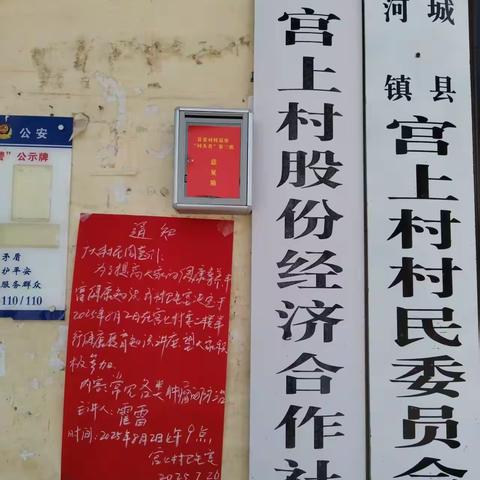 公安
”公示牌
矛盾
护平安
服务群众
110/110
意见箱
通知
广大村民同志们:
为了提高大家的健康素养丰
富健康知识我村卫生室定于
2025年8月2日在宫上村委二楼举
行健康教育知识讲座望大家积
极参加
内容:常见各类肿瘤的防治
主讲人:霍雷
时间:2025年8月2日上午9点
宫上村卫生室
2025.7.26
宫上村股份经济合作社
河城
镇县
宫上村村民委员会